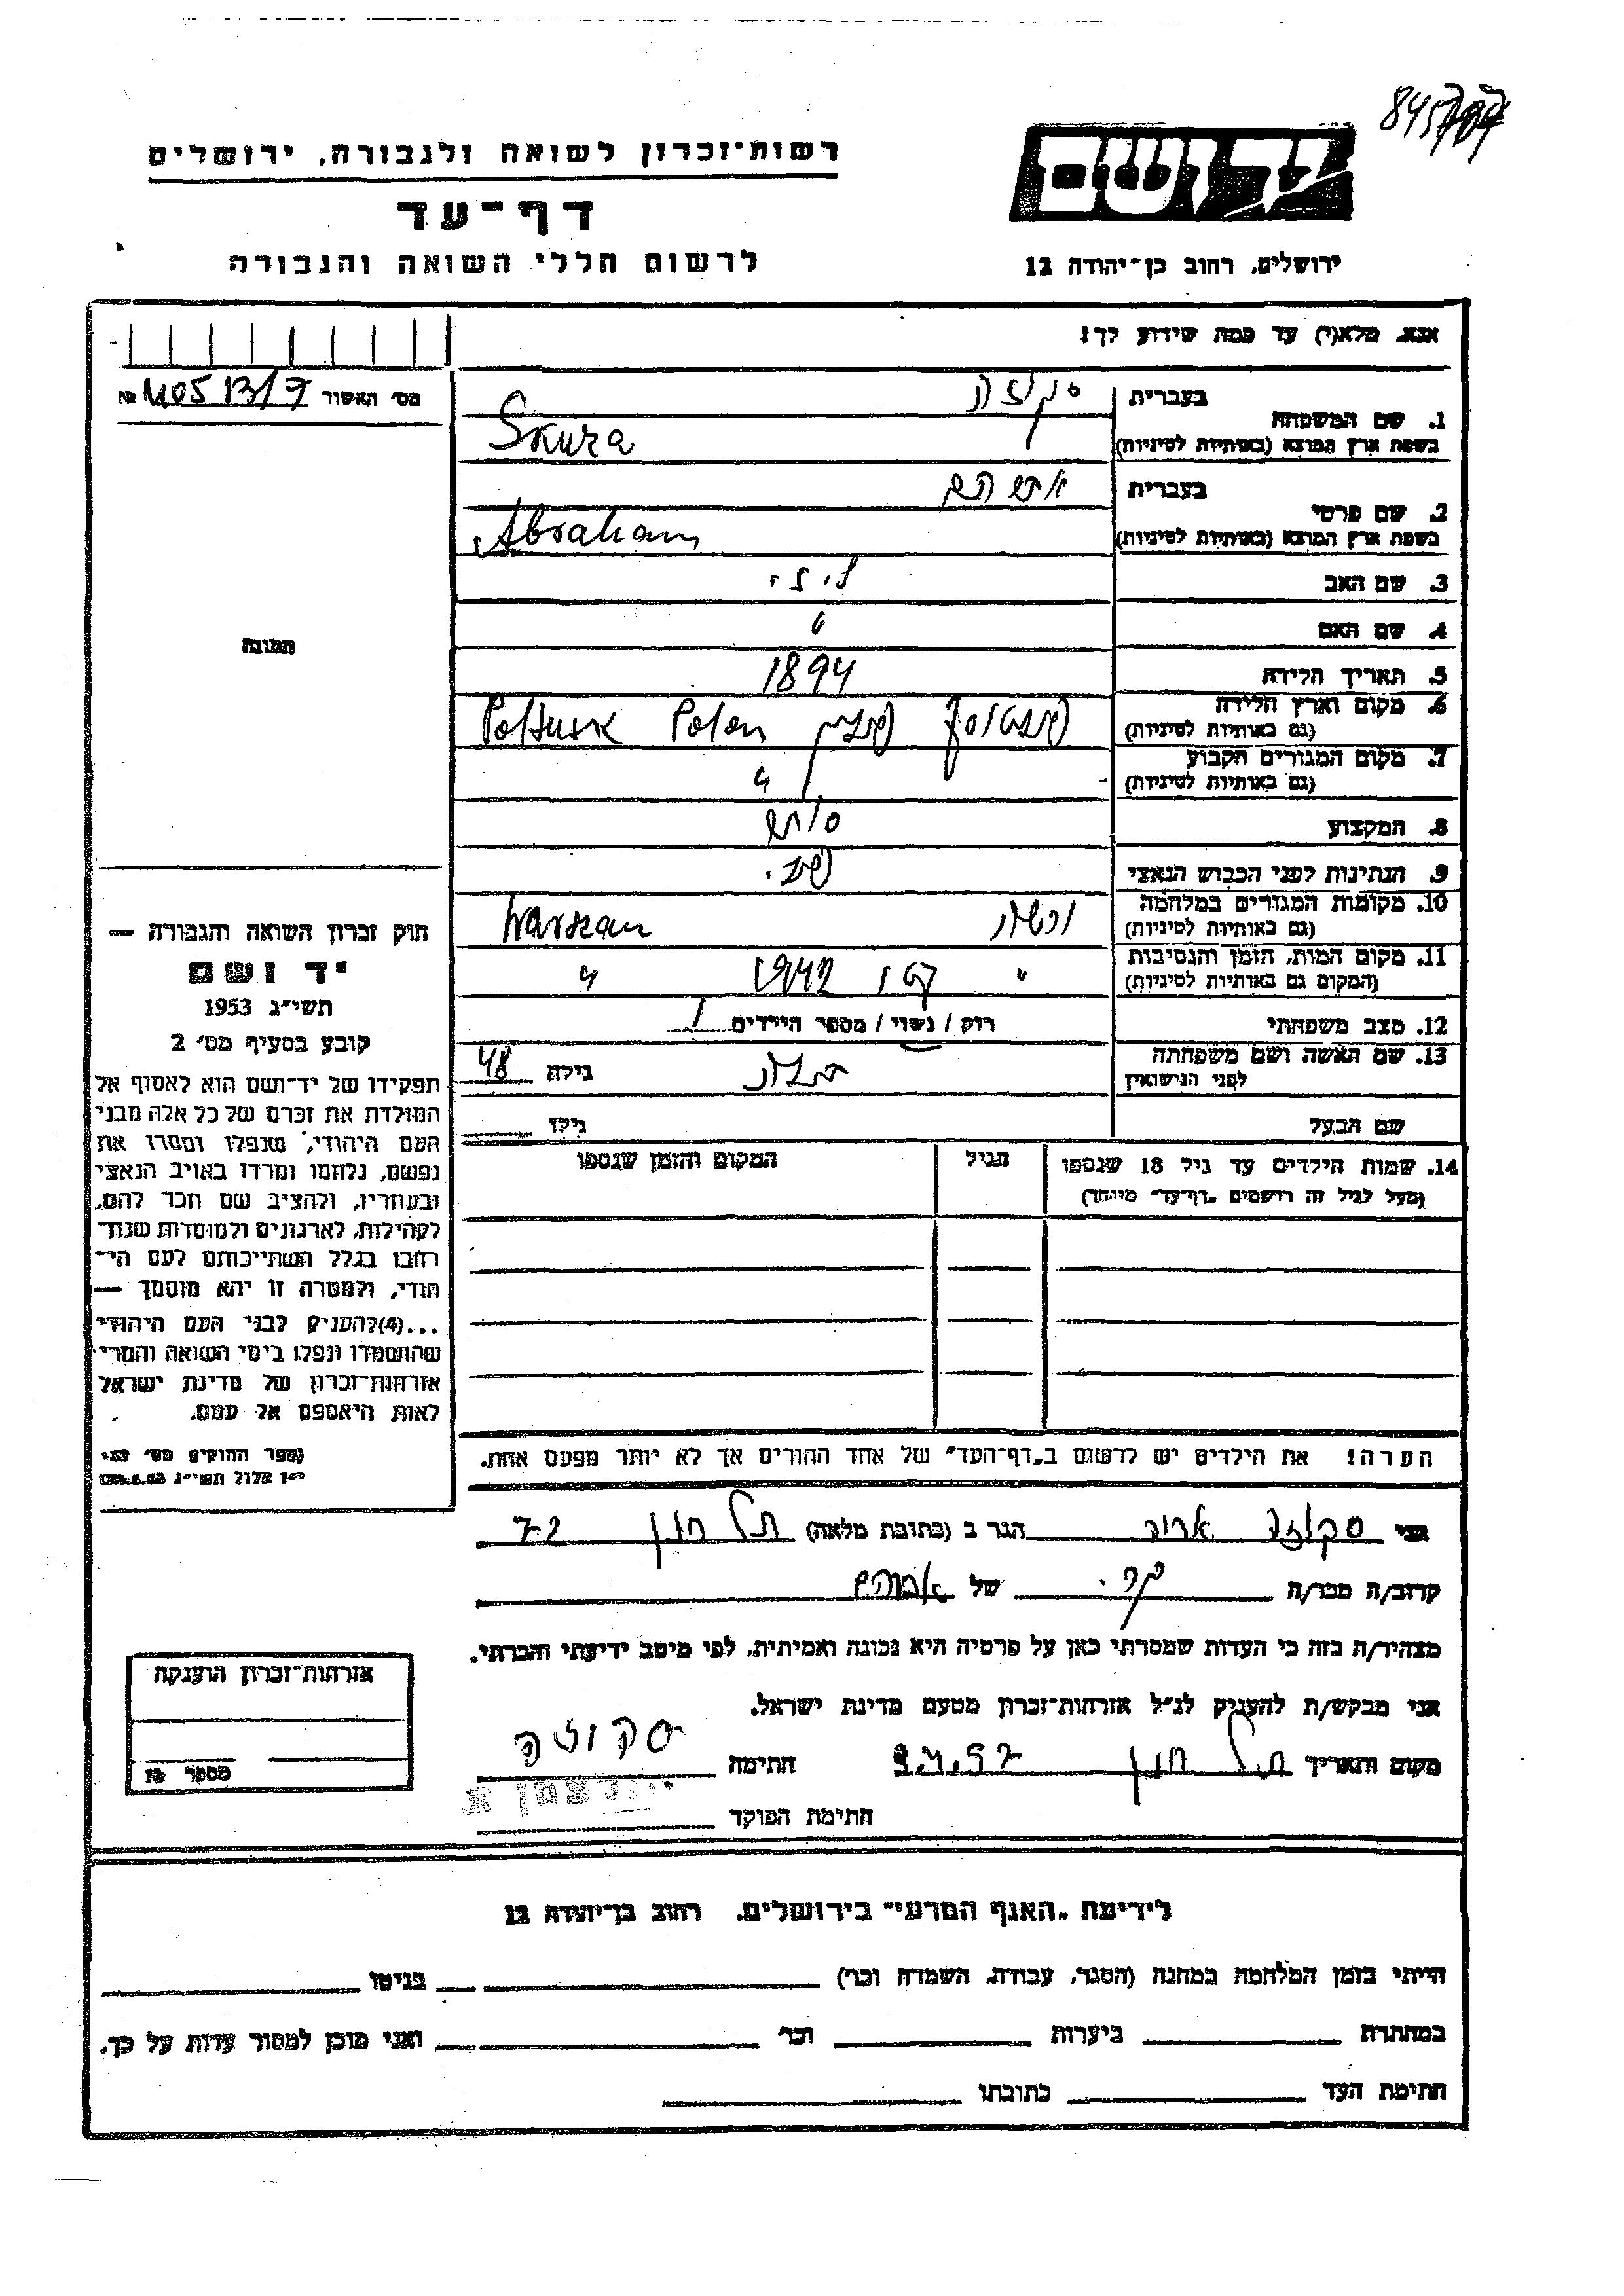 845
רשות־זכרון לשואה ולגבורה, ירושלים
דף־עד
לרשום חללי השואה והגבורה
יד ושם
ירושלים, רחוב בן־יהודה 12
אנא, מלא(י) עד כמה שידוע לך!
מס׳ האשור №
1. שם המשפחה
בעברית סקורה
בשפת ארץ המוצא (באותיות לטיניות) Skura
2. שם פרטי
בעברית אברהם
בשפת ארץ המוצא (באותיות לטיניות) Abraham
3. שם האב
4. שם האם "
5. תאריך הלידה 1894
6. מקום וארץ הלידה
(גם באותיות לטיניות) פולטוסק פולין Poltusk Polen
7. מקום המגורים הקבוע
(גם באותיות לטיניות) "
8. המקצוע סוחר
9. הנתינות לפני הכבוש הנאצי פולני
10. מקומות המגורים במלחמה
(גם באותיות לטיניות) ורשה Warszau
11. מקום המות, הזמן והנסיבות
(המקום גם באותיות לטיניות) " גטו 1942 "
12. מצב משפחתי רוק / נשוי / מספר הילדים 1
13. שם האשה ושם משפחתה
לפני הנישואין גילה 48
שם הבעל גילו
14. שמות הילדים עד גיל 18 שנספו
(מעל לגיל זה רושמים „דף־עד״ מיוחד)
הגיל
המקום והזמן שנספו
הערה! את הילדים יש לרשום ב„דף־העד״ של אחד ההורים אך לא יותר מפעם אחת.
תמונה
חוק זכרון השואה והגבורה —
יד ושם
תשי״ג 1953
קובע בסעיף מס׳ 2
תפקידו של יד־ושם הוא לאסוף אל
המולדת את זכרם של כל אלה מבני
העם היהודי, שנפלו ומסרו את
נפשם, נלחמו ומרדו באויב הנאצי
ובעוזריו, ולהציב שם וזכר להם,
לקהילות, לארגונים ולמוסדות שנח־
רבו בגלל השתייכותם לעם הי־
הודי, ולמטרה זו יהא מוסמך —
...(4)להעניק לבני העם היהודי
שהושמדו ונפלו בימי השואה והמרי
אזרחות־זכרון של מדינת ישראל
לאות היאספם אל עמם.
ספר החוקים מס׳ 132
י״ז אלול תשי״ג 28.8.53
אני סקורה הגר ב (כתובת מלאה) תל חנן 72
קרוב/ה מכר/ה של אברהם
מצהיר/ה בזה כי העדות שמסרתי כאן על פרטיה היא נכונה ואמיתית, לפי מיטב ידיעתי והכרתי.
אני מבקש/ת להעניק לנ״ל אזרחות־זכרון מטעם מדינת ישראל.
מקום ותאריך תל חנן חתימה סקורה
חתימת הפוקד
אזרחות־זכרון הוענקה
מספר №
לידיעת „האגף המדעי״ בירושלים, רחוב בן־יהודה 12
הייתי בזמן המלחמה במחנה (הסגר, עבודה, השמדה וכו׳) בגיטו
במחתרת ביערות וכו׳ ואני מוכן למסור עדות על כך.
חתימת העד כתובתו